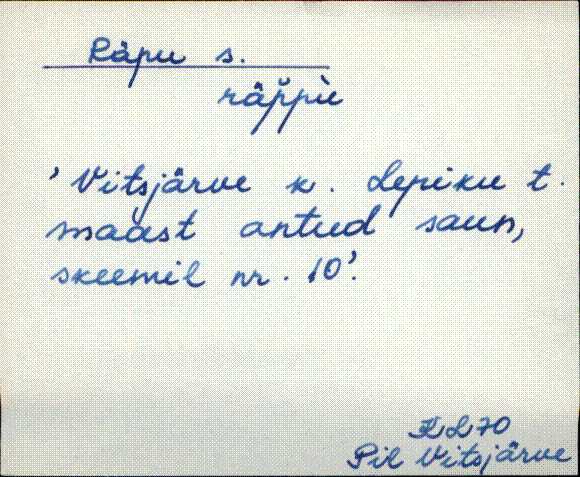 Räpu s.
räp̆pù
'Vitsjärve k. Lepiku t.
maast antud saun,
skeemil nr. 10'.
KL70
Pil Vitsjärve